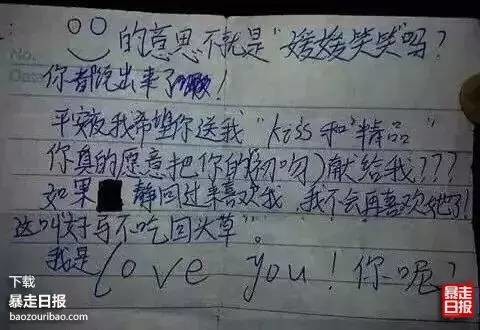 的意思不就是“媛媛笑笑”吗？
No.
Date
你都说出来了！
平安夜我希望你送我“kiss和“精品”
你真的愿意把你的(初吻)献给我？？？
如果 静回过来喜欢我，我不会再喜欢她了！
这叫好马不吃回头草”。
我是Love you！你呢？
下载
暴走日报
baozouribao.com
暴走
日报